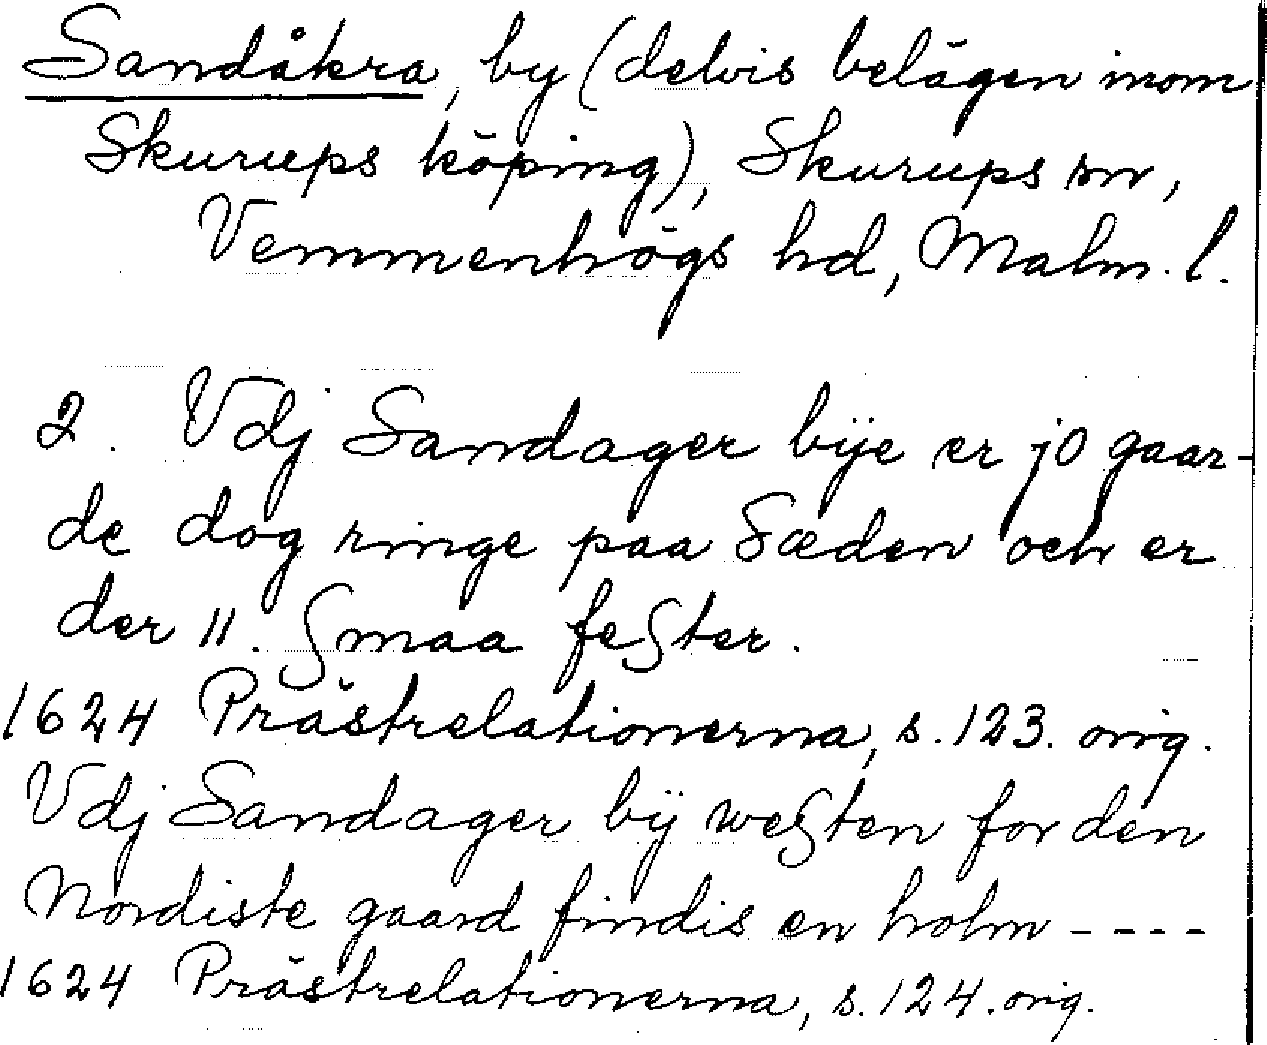 Sandåkra, by (delvis belägen inom
Skurups köping), Skurups sn,
Vemmenhögs hd, Malm. l.
2. Vdj Sandager bÿe er jo gaar-
de dog ringe paa Sæden och er
der 11. Smaa feSter.
1624 Prästrelationerna, s. 123. orig.
Vdj Sandager bÿ weSten for den
Nordiste gaard findis en holm ----
1624 Prästrelationerna, s. 124. orig.